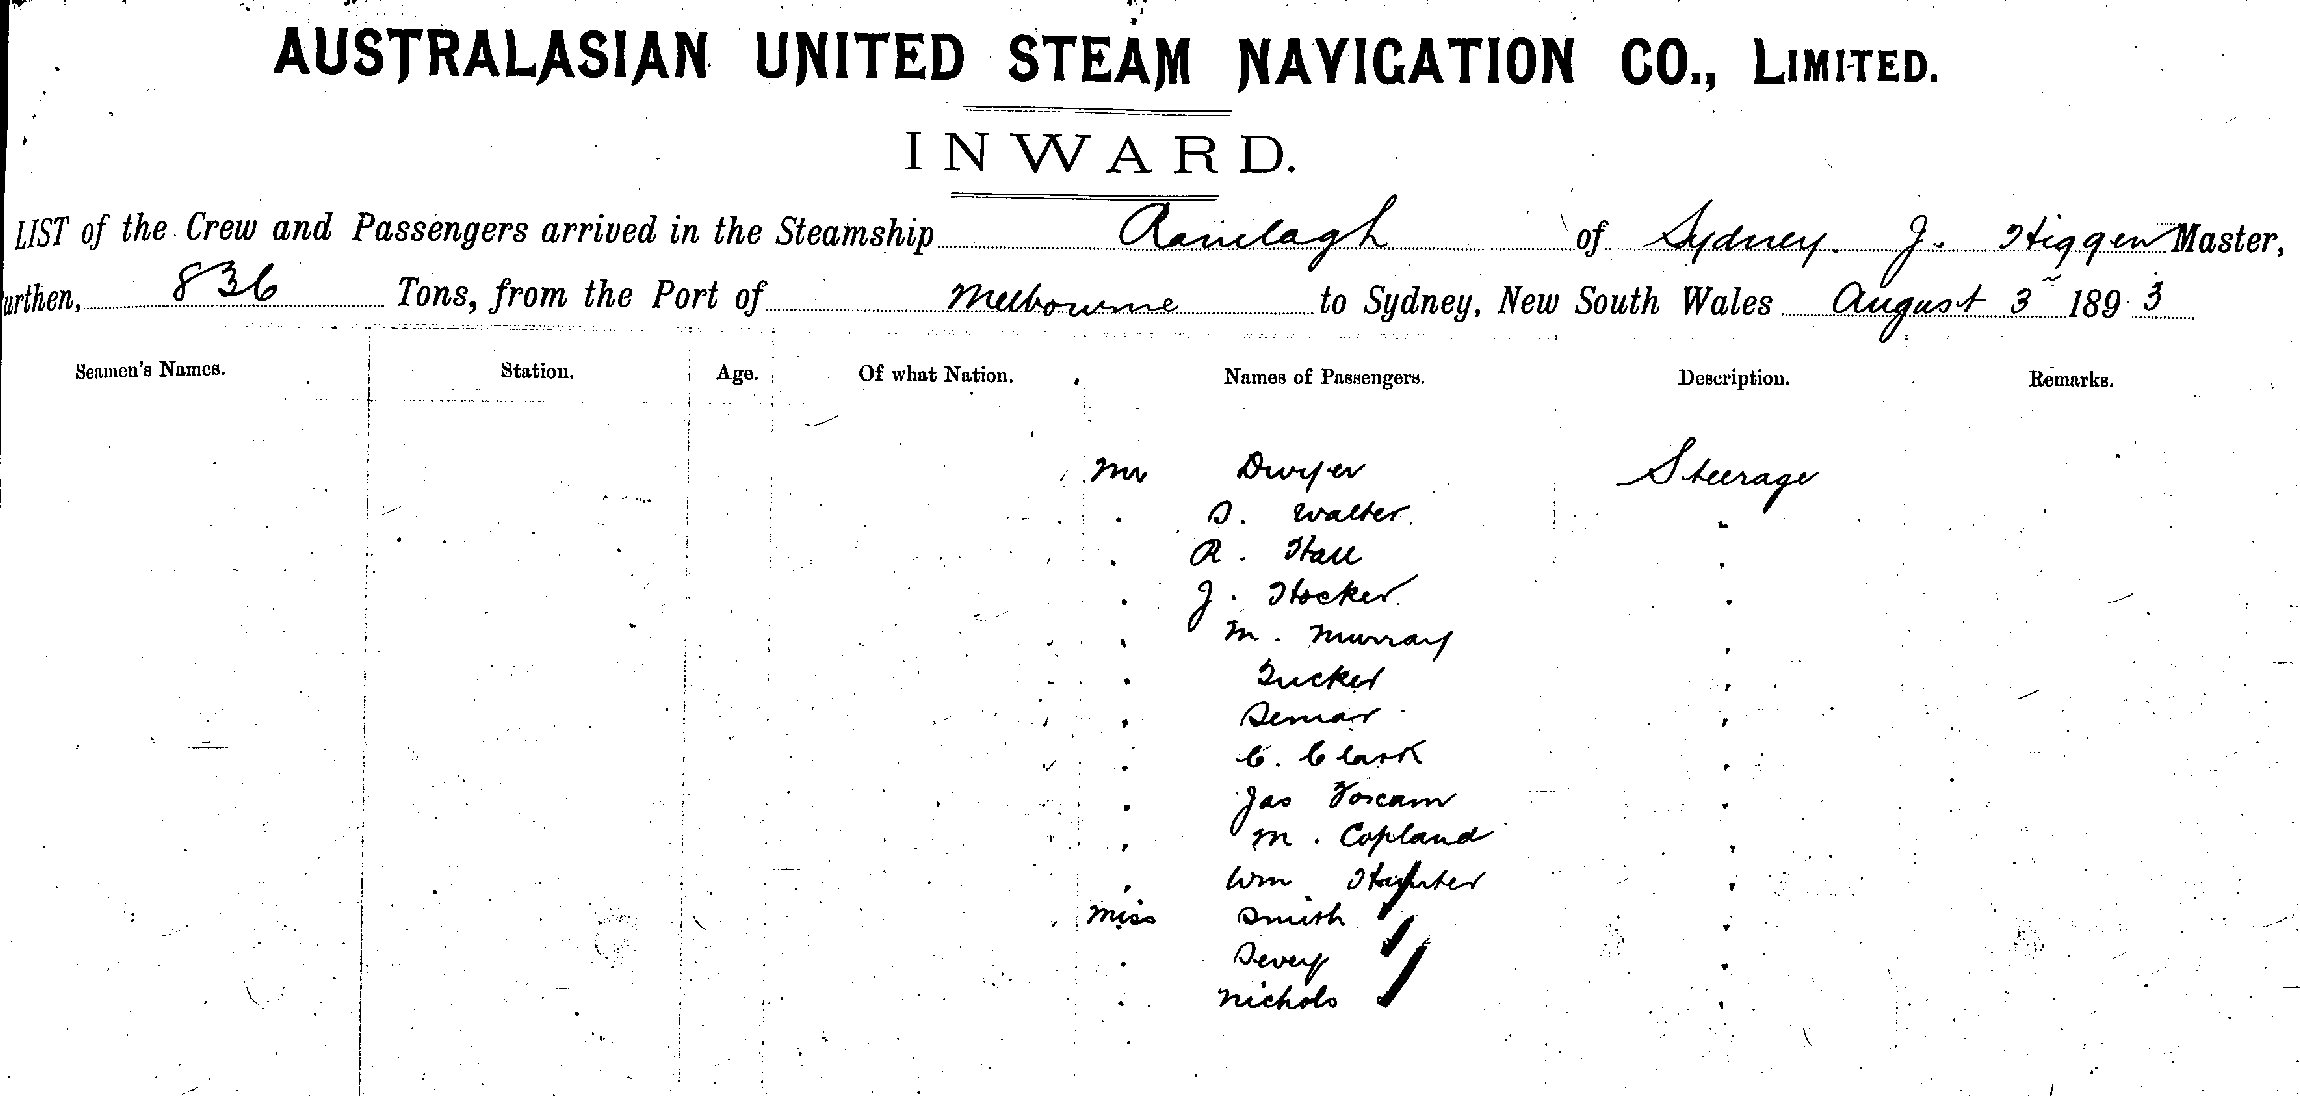 AUSTRALASIAN UNITED STEAM NAVIGATION CO., LIMITED.
INWARD.
LIST of the Crew and Passengers arrived in the Steamship Ranelagh of Sydney. J. Higgen Master,
urthen, 836 Tons, from the Port of Melbourne to Sydney, New South Wales August 3 1893
Seamen's Names. Station. Age. Of what Nation. Names of Passengers. Description. Remarks.
Mr Dwyer Steerage
" S. Walter "
" R. Hall "
" J. Hocker "
" M. Murray "
" Tucker "
" "
" C. Clark "
" Jas "
" M. Copland "
" Wm "
Miss Smith "
" "
" Nichols "